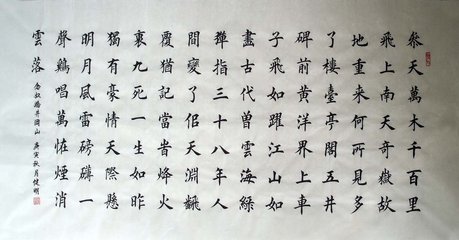 叅天萬木千百里
飛上南天奇嶽故
地重來何所見多
了樓臺亭閣五井
碑前黃洋界上車
子飛如躍江山如
畫古代曾雲海綠
彈指三十八年人
間變了佀天淵飜
覆猶記當旹烽火
裏九死一生如昨
獨有豪情天際懸
明月風雷磅礴一
聲鷄唱萬恠煙消
雲落
念奴嬌井岡山 庚寅秋月